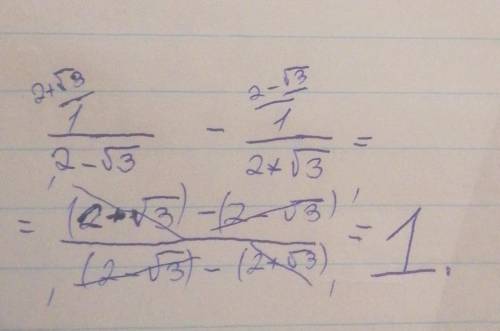 2+√3 2-√3
1/(2-√3) - 1/(2+√3) =
= ((2+√3) - (2-√3))/((2-√3) - (2+√3)) = 1.